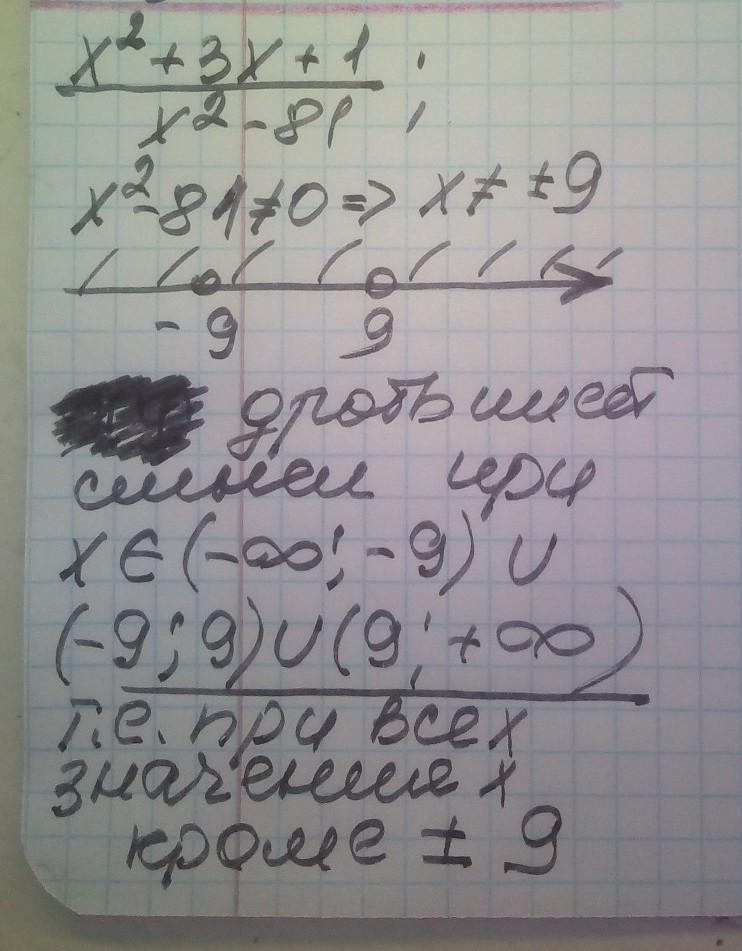 x² + 3x + 1 ;
x² - 81
x² - 81 ≠ 0 => x ≠ ± 9
- 9 9
дробь имеет
смысл при
x ∈ (-∞; -9) ∪
(-9; 9) ∪ (9; +∞)
т.е. при всех
значениях
кроме ± 9